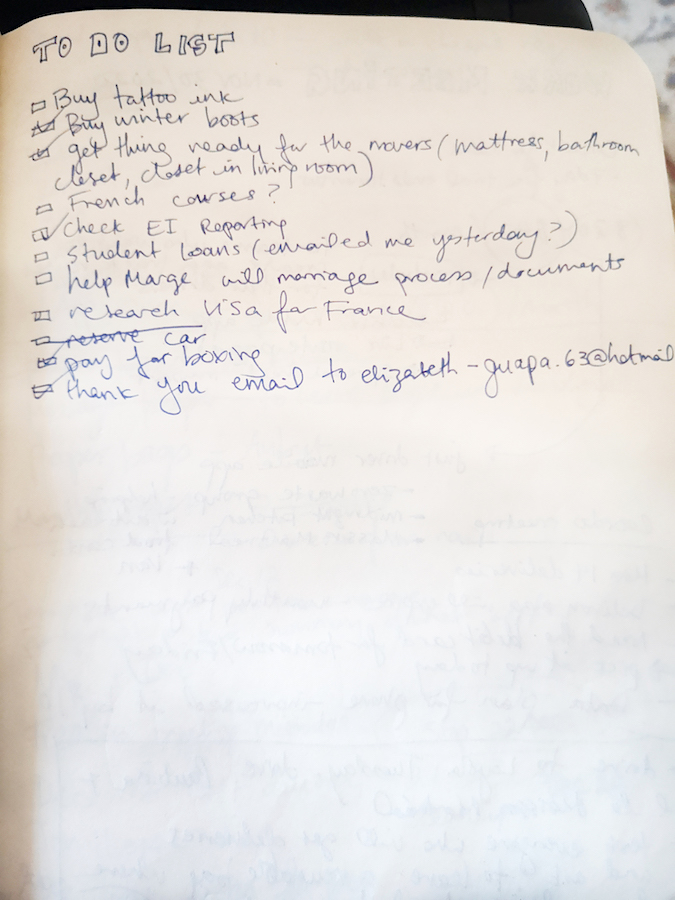 TO DO LIST
Buy tattoo ink
Buy winter boots
get thing ready for the movers (mattress, bathroom
closet, closet in living room)
French courses?
Check EI Reporting
Student loans (emailed me yesterday?)
help Marge will marriage process/documents
research Visa for France
reserve car
pay for boxing
thank you email to elizabeth-guapa.63@hotmail